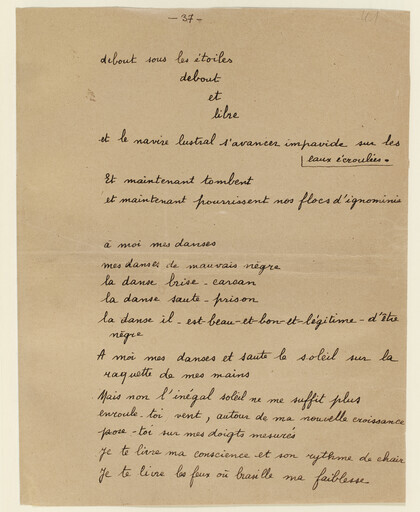 - 37 -
debout sous les étoiles
debout
et
libre
et le navire lustral s'avancer impavide sur les
eaux écroulées.
Et maintenant tombent
et maintenant pourrissent nos flocs d'ignominie
à moi mes danses
mes danses de mauvais nègre
la danse brise-carcan
la danse saute-prison
la danse il-est-beau-et-bon-et-légitime-d'être
nègre
A moi mes danses et saute le soleil sur la
raquette de mes mains
Mais non l'inégal soleil ne me suffit plus
enroule-toi vent, autour de ma nouvelle croissance
pose-toi sur mes doigts mesurés
Je te livre ma conscience et son rythme de chair
Je te livre les feux où brasille ma faiblesse